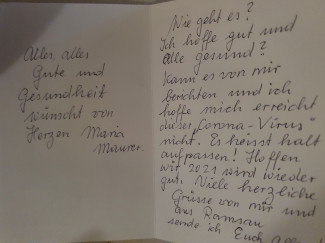 Alles, alles
Gute und
Gesundheit
wünscht von
Herzen Maria
Maurer.
Wie geht es?
Ich hoffe gut und
Alle gesund?
Kann es von mir
berichten und ich
hoffe mich erreicht
dieser "Corona-Virus"
nicht. Es heisst halt
aufpassen! Hoffen
wir 2021 wird wieder
gut. Viele herzliche
Grüsse von mir und
aus Ramsau
sende ich Euch